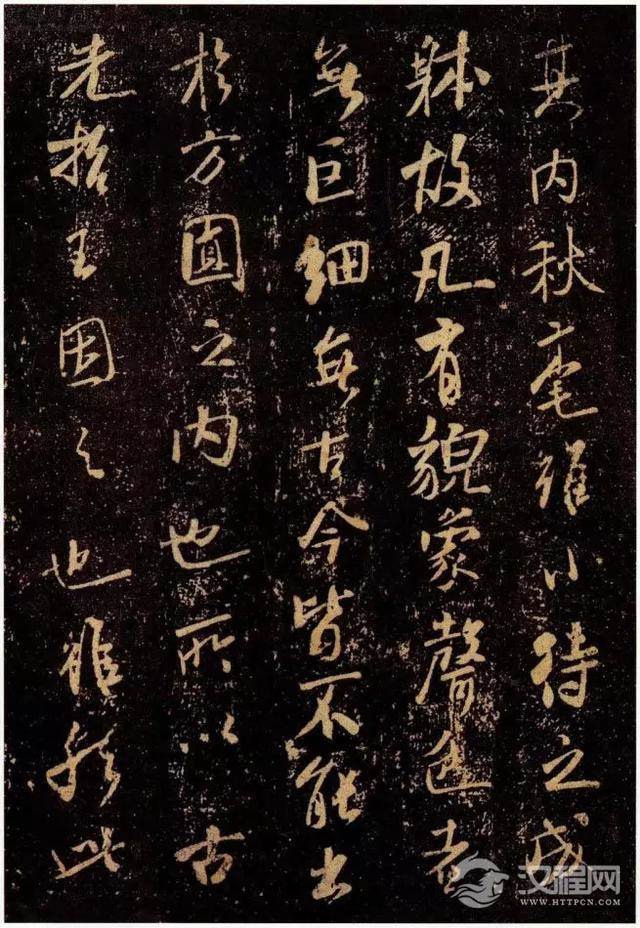 其内秋毫雖小待之成
躰故凡有貌象聲色者
無巨細無古今皆不能出
於方圓之内也所以古
先哲王因之也雖然此
汉程网
WWW.HTTPCN.COM